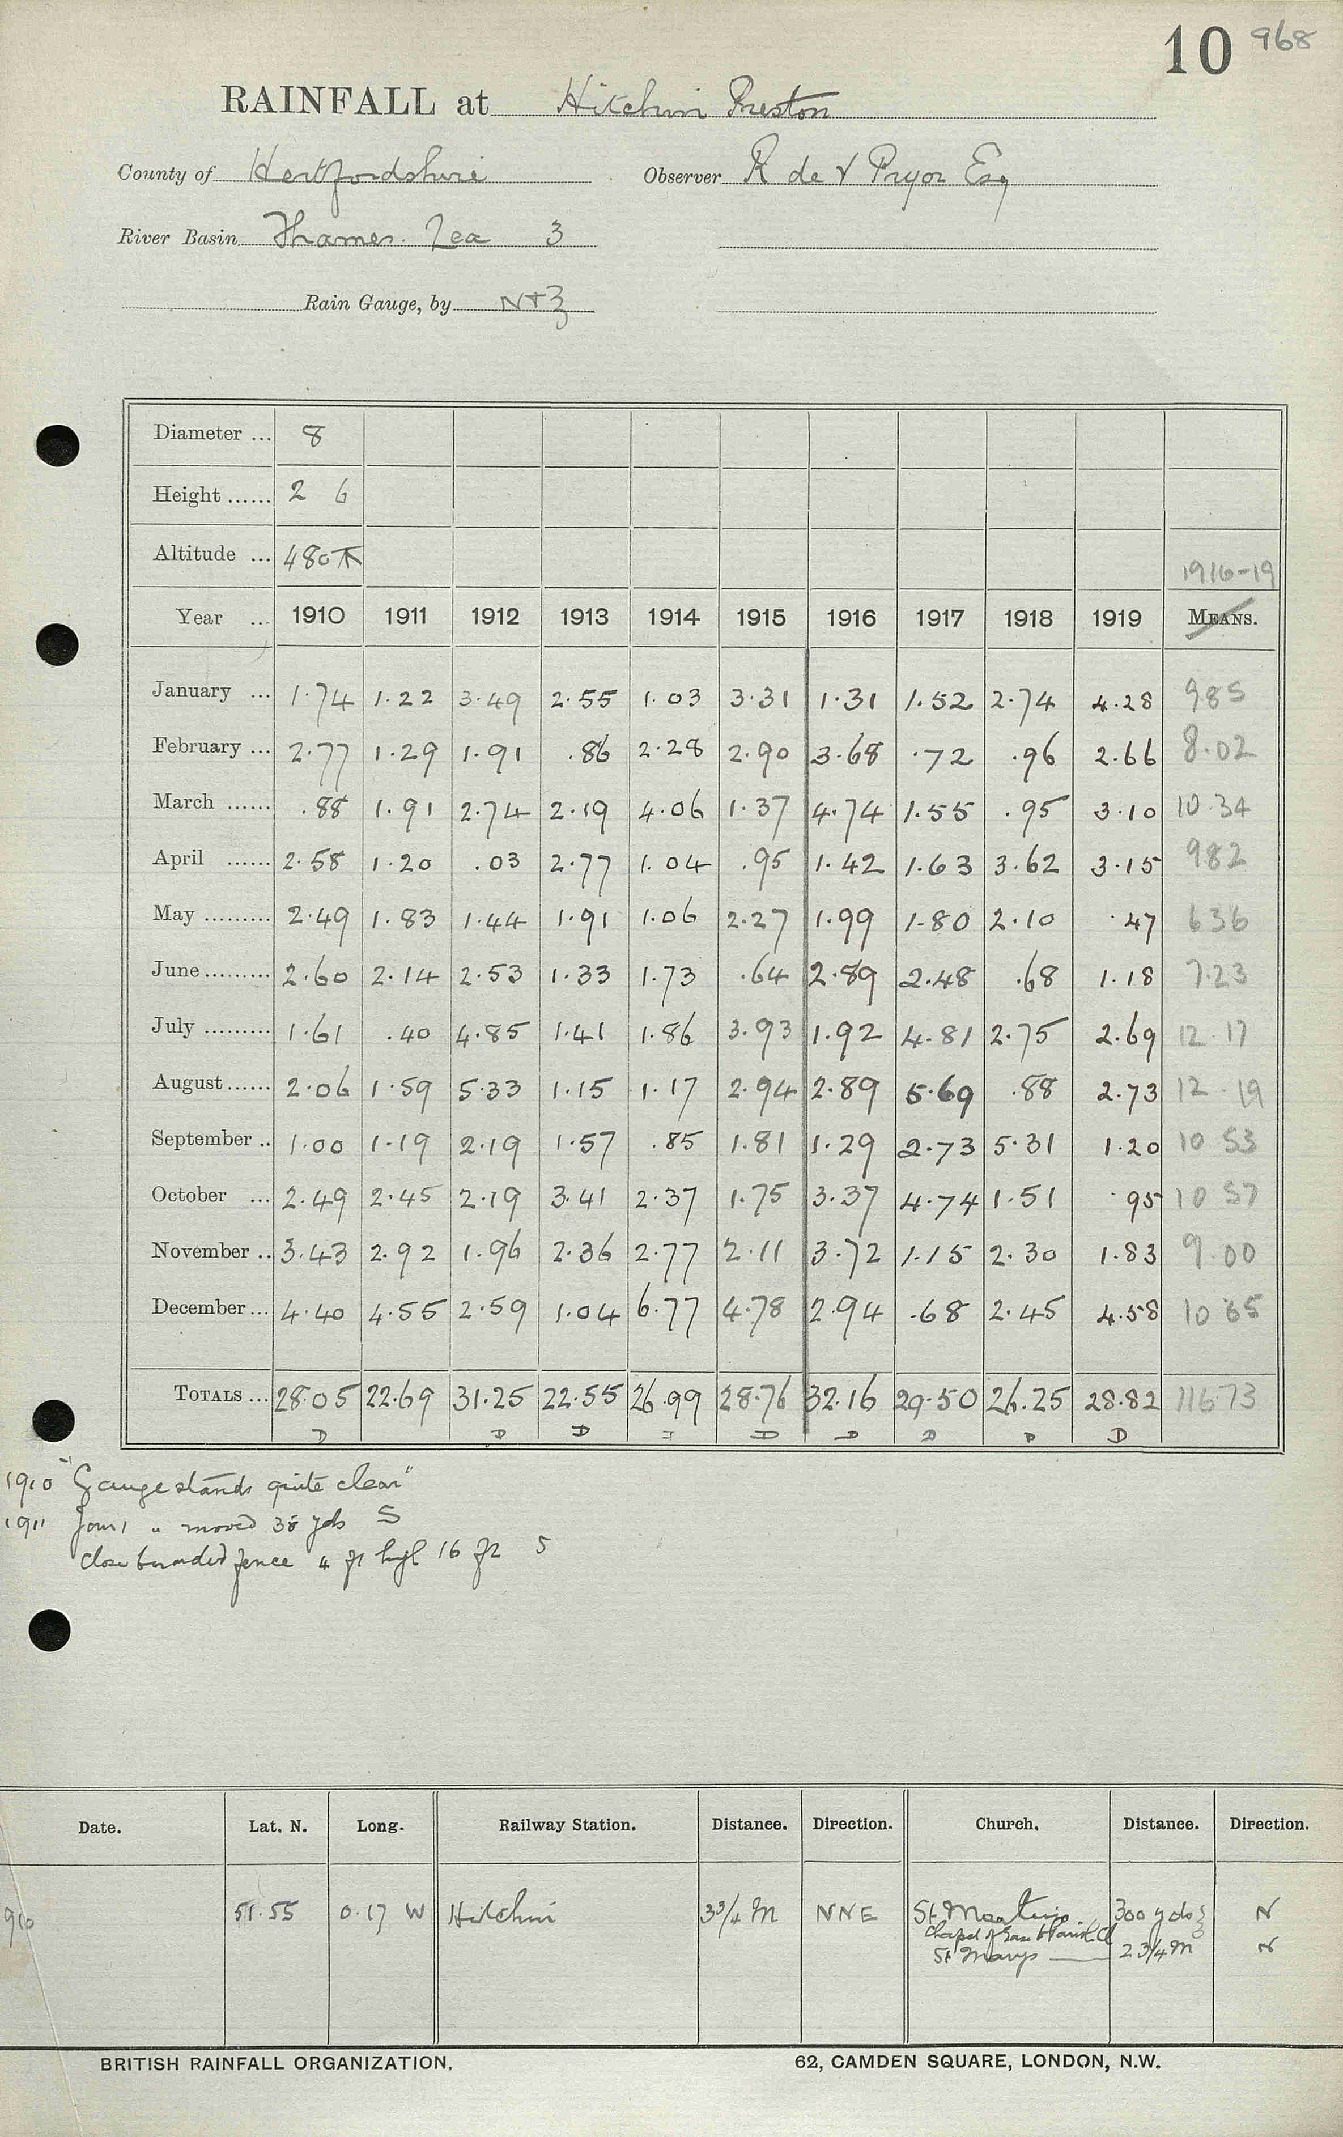 10 968
RAINFALL at Hitchin Preston
County of Hertfordshire Observer R de V Pryor Esq
River Basin Thames. Lea 3
Rain Gauge, by N+Z
Diameter ... 8
Height ...... 2 6
Altitude ... 480
1916-19
Year ... 1910 1911 1912 1913 1914 1915 1916 1917 1918 1919 MEANS.
January ... 1.74 1.22 3.49 2.55 1.03 3.31 1.31 1.52 2.74 4.28 985
February ... 2.77 1.29 1.91 .86 2.28 2.90 3.68 .72 .96 2.66 8.02
March ...... .88 1.91 2.74 2.19 4.06 1.37 4.74 1.55 .95 3.10 10.34
April ...... 2.58 1.20 .03 2.77 1.04 .95 1.42 1.63 3.62 3.15 982
May ......... 2.49 1.83 1.44 1.91 1.06 2.27 1.99 1.80 2.10 .47 636
June ......... 2.60 2.14 2.53 1.33 1.73 .64 2.89 2.48 .68 1.18 7.23
July ......... 1.61 .40 4.85 1.41 1.86 3.93 1.92 4.81 2.75 2.69 12.17
August ...... 2.06 1.59 5.33 1.15 1.17 2.94 2.89 5.69 .88 2.73 12.19
September .. 1.00 1.19 2.19 1.57 .85 1.81 1.29 2.73 5.31 1.20 10 53
October ... 2.49 2.45 2.19 3.41 2.37 1.75 3.37 4.74 1.51 .95 10 57
November .. 3.43 2.92 1.96 2.36 2.77 2.11 3.72 1.15 2.30 1.83 9 00
December ... 4.40 4.55 2.59 1.04 6.77 4.78 2.94 .68 2.45 4.58 10 65
TOTALS ... 28.05 22.69 31.25 22.55 26.99 28.76 32.16 29.50 26.25 28.82 11673
D D D D D D D D
1910 "Gauge stands quite clear"
1911 " moved 38 yds S
Close boarded fence 4 ft high 16 ft S
Date. Lat. N. Long. Railway Station. Distance. Direction. Church. Distance. Direction.
910 51.55 0.17 W Hitchin 3 3/4 M NNE St Martins. 300 yds N
Chapel of Ease to Parish
St Marys 2 3/4 M N
BRITISH RAINFALL ORGANIZATION. 62, CAMDEN SQUARE, LONDON, N.W.